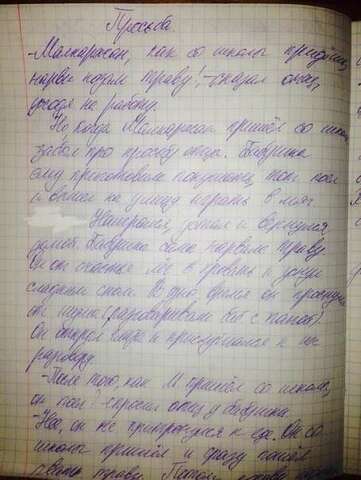 Просьба.
-Малкарасан, как со школы придёшь,
нарви козам траву! -сказал отец,
уходя на работу.
Но, когда Малкарасан пришёл со школы,
забыл про просьбу отца. Бабушка
ему приготовила покушать, поел
и вышел на улицу играть в мяч
Наигрался, устал и вернулся
домой. Бабушка сама нарвала траву.
Он от счастья лёг в кровать и уснул
сладким сном. В одно время он проснулся
от шума (разговаривали с папой).
Он открыл и прислушался к их
разговору.
-После того, как М пришёл со школы,
он поел? -спросил отец у бабушки.
-Нет, он не притронулся к еде. Он со
школы пришёл и сразу пошёл
траву. Потом